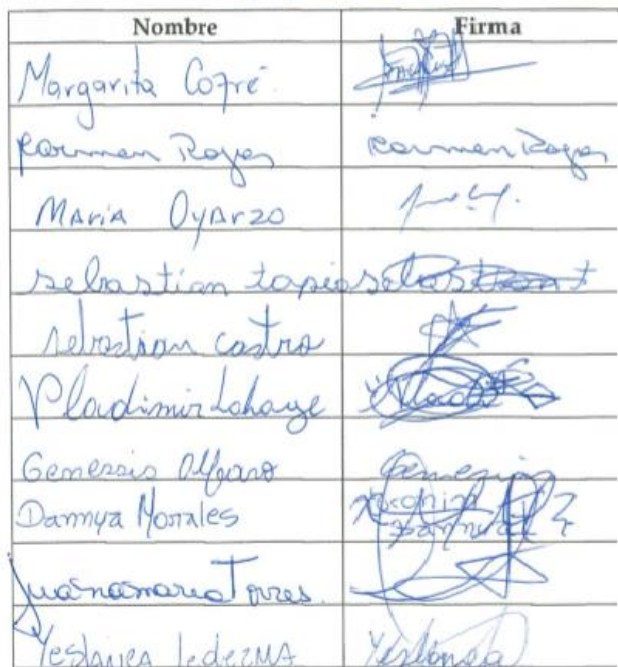 Nombre Firma
Margarita Cofré
Karmen Rojas Karmen Rojas
María Oyarzo
sebastian tapia sebastian t
sebastian castro
Vladimir Lahaye
Genessis Alfaro Genessis
Dannya Morales
Juanamaria Torres
ledezma